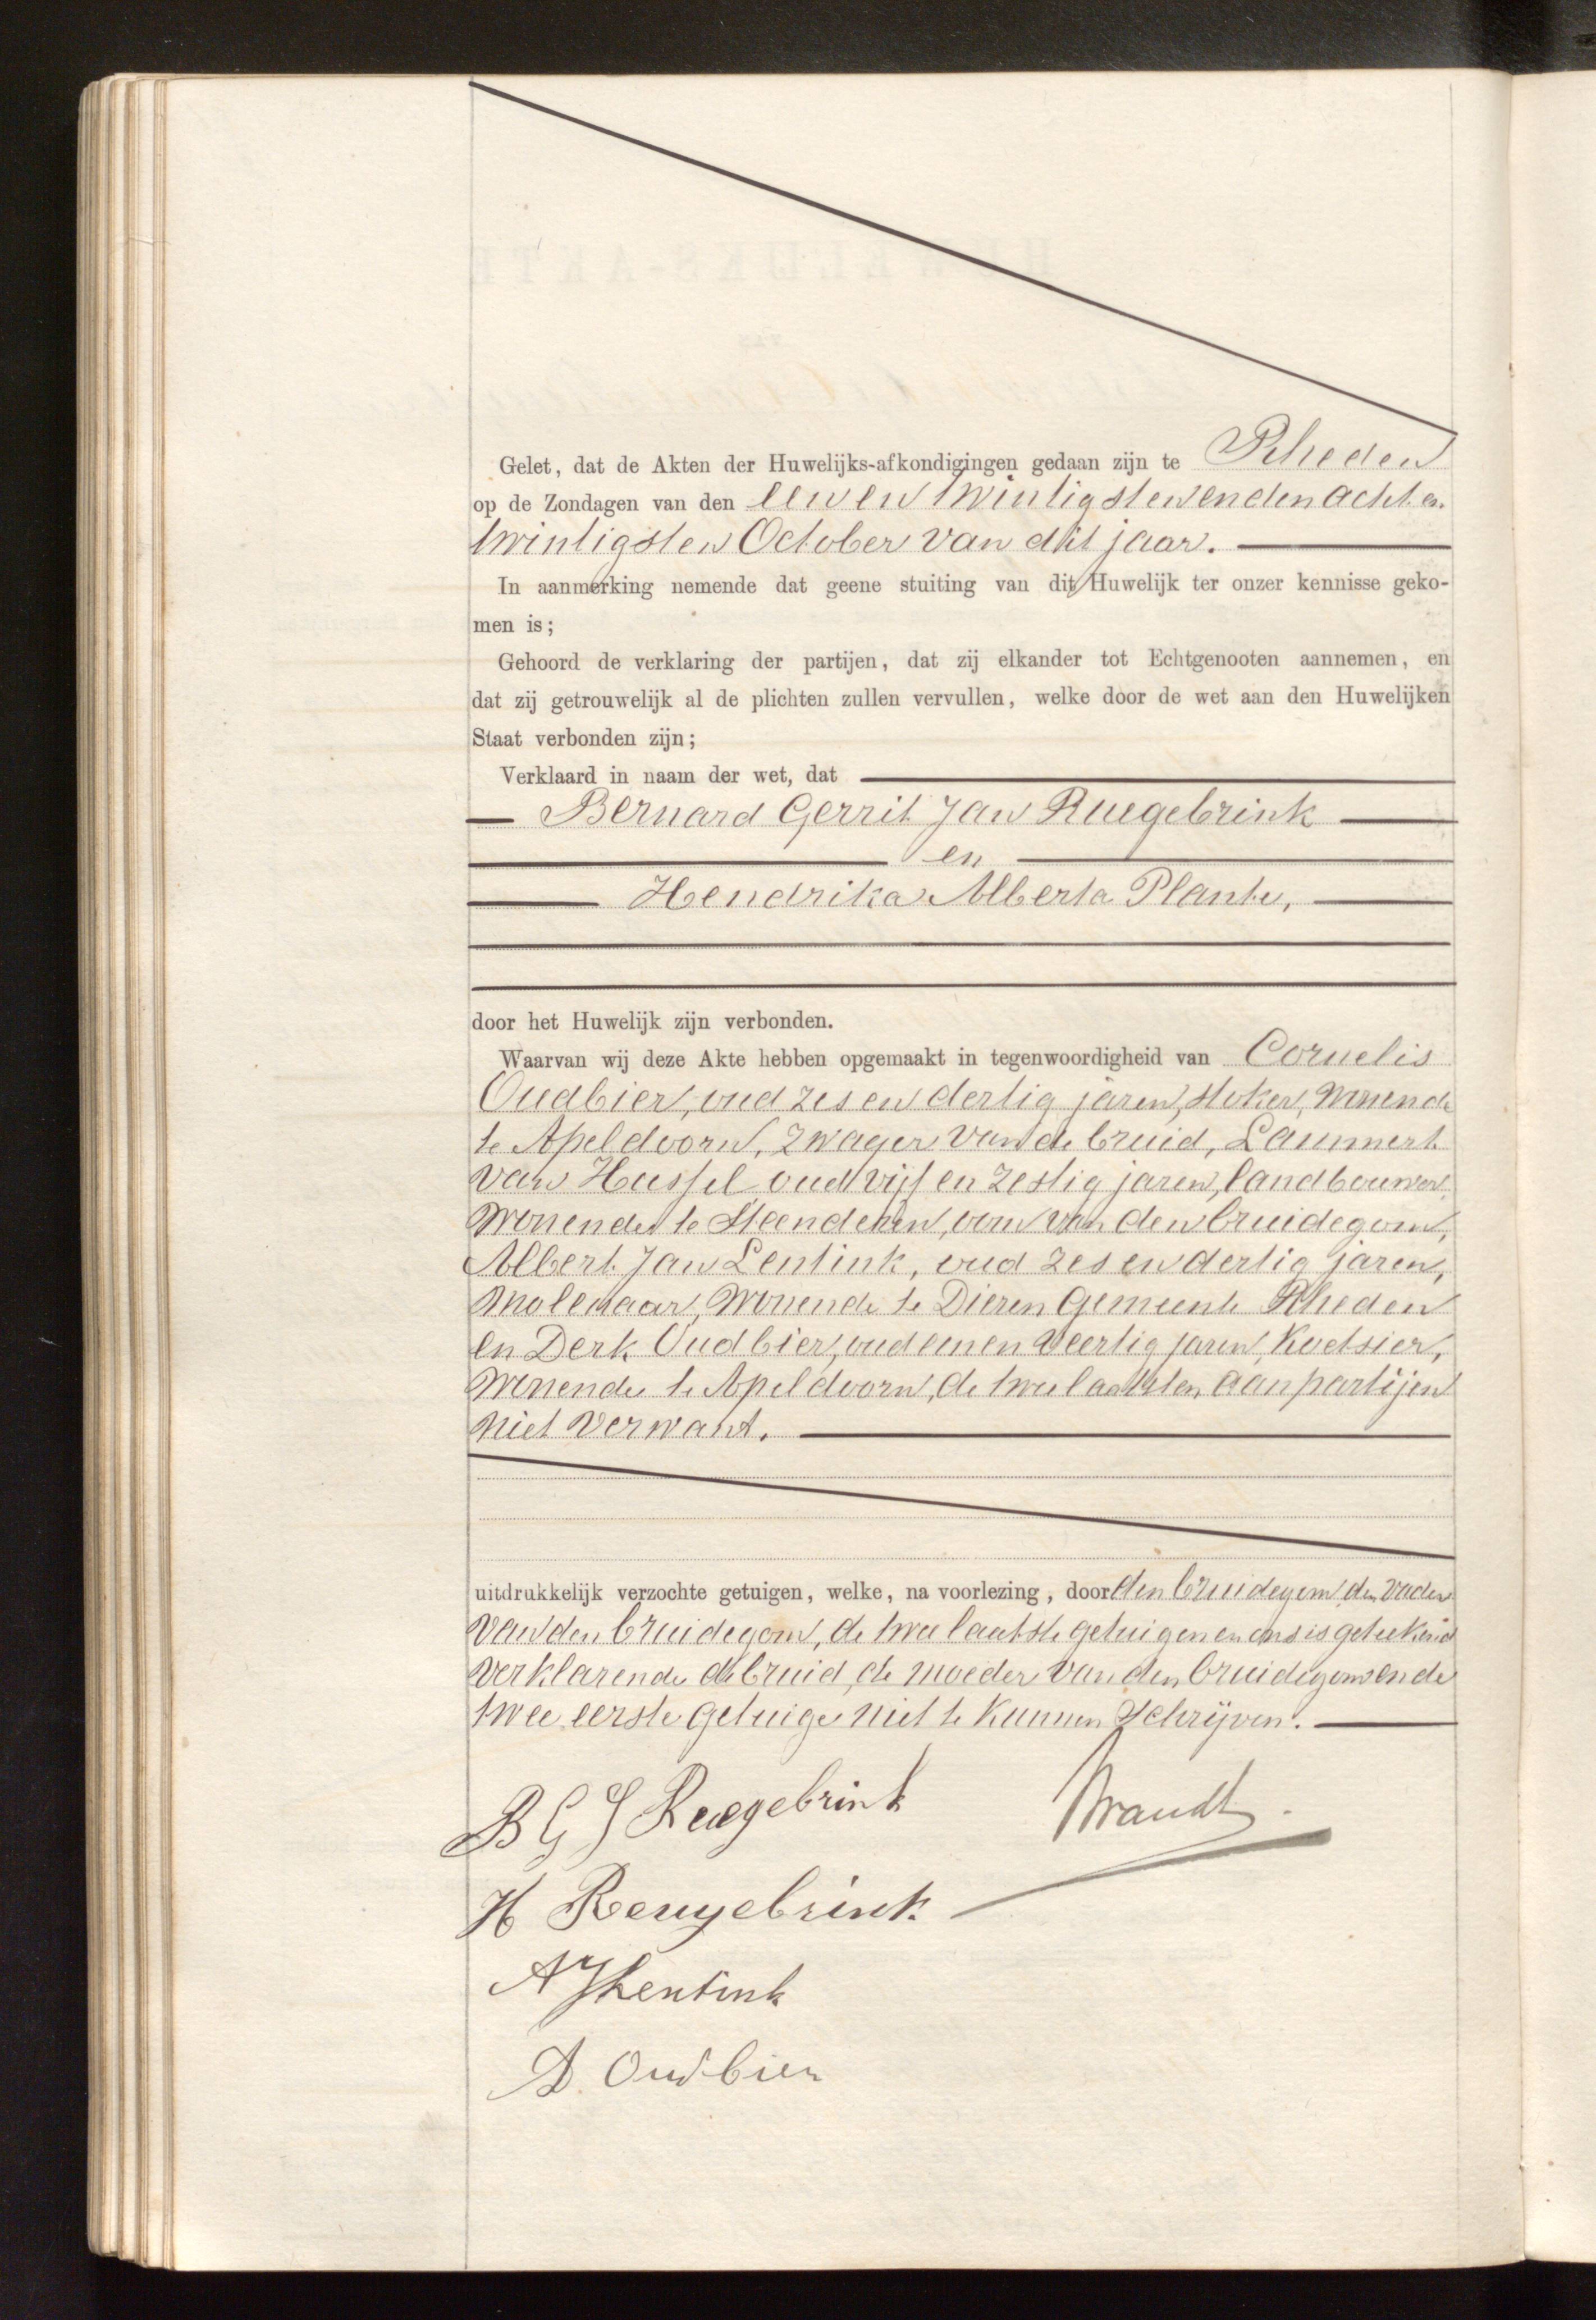 Gelet, dat de Akten der Huwelijks-afkondigingen gedaan zijn te Rheden
op de Zondagen van den een en twintigsten en den acht en
twintigsten October van dit jaar.
In aanmerking nemende dat geene stuiting van dit Huwelijk ter onzer kennisse geko-
men is;
Gehoord de verklaring der partijen, dat zij elkander tot Echtgenooten aannemen, en
dat zij getrouwelijk al de plichten zullen vervullen, welke door de wet aan den Huwelijken
Staat verbonden zijn;
Verklaard in naam der wet, dat
Bernard Gerrit Jan Ruegebrink
en
Hendrika Alberta Plante,
door het Huwelijk zijn verbonden.
Waarvan wij deze Akte hebben opgemaakt in tegenwoordigheid van Cornelis
Oudbier, oud zes en dertig jaren, stoker, wonende
te Apeldoorn, zwager van de bruid, Lammert
van Hussel oud vijf en zestig jaren, landbouwer,
wonende te Steenderen, oom van den bruidegom,
Albert Jan Lentink, oud zes en dertig jaren,
molenaar, wonende te Dieren Gemeente Rheden
en Derk Oudbier, oud een en veertig jaren, koetsier,
wonende te Apeldoorn, de twee laatsten aan partijen
niet verwant.
uitdrukkelijk verzochte getuigen, welke, na voorlezing, door den bruidegom, den vader
van den bruidegom, de twee laatste getuigen en ons is geteekend
verklarende de bruid, de moeder van den bruidegom en de
twee eerste getuige niet te kunnen schrijven.
B G J Ruegebrink Brandt
H Reugebrink
A J Lentink
D. Oudbier